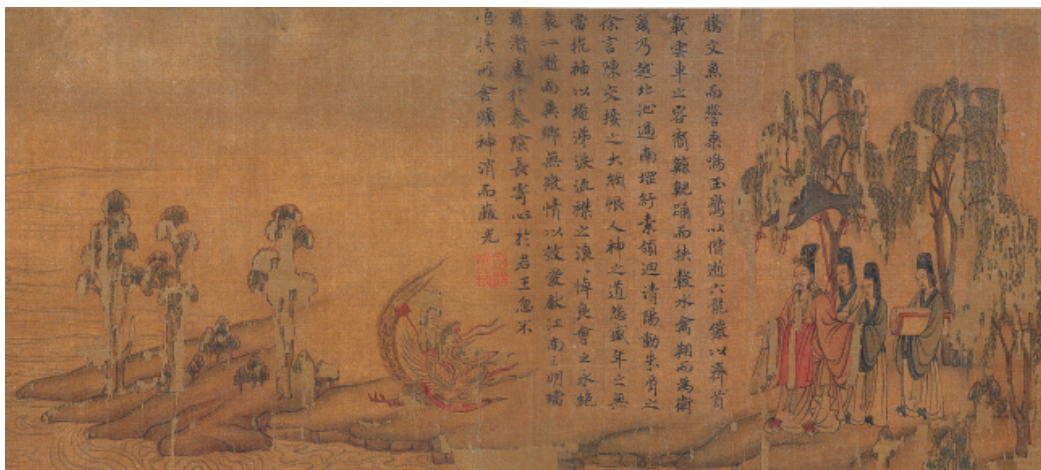 騰文魚而警乘鳴玉鸞以偕逝六龍儼以齊首
載雲車之容裔鯨鯢踊而挾轂水禽翔而為衛
乃越北沚過南堽紆素領迴清陽動朱脣之
徐言陳交接之大綱恨人神之道怨盛年之無
當抗袖以掩涕淚流襟之浪〻悼良會之永絶
哀一逝而異鄉無微情以效愛獻江南之明璫
雖潛處於泰陰長寄心於君王忽不
悟其所舍悵神消而蔽光